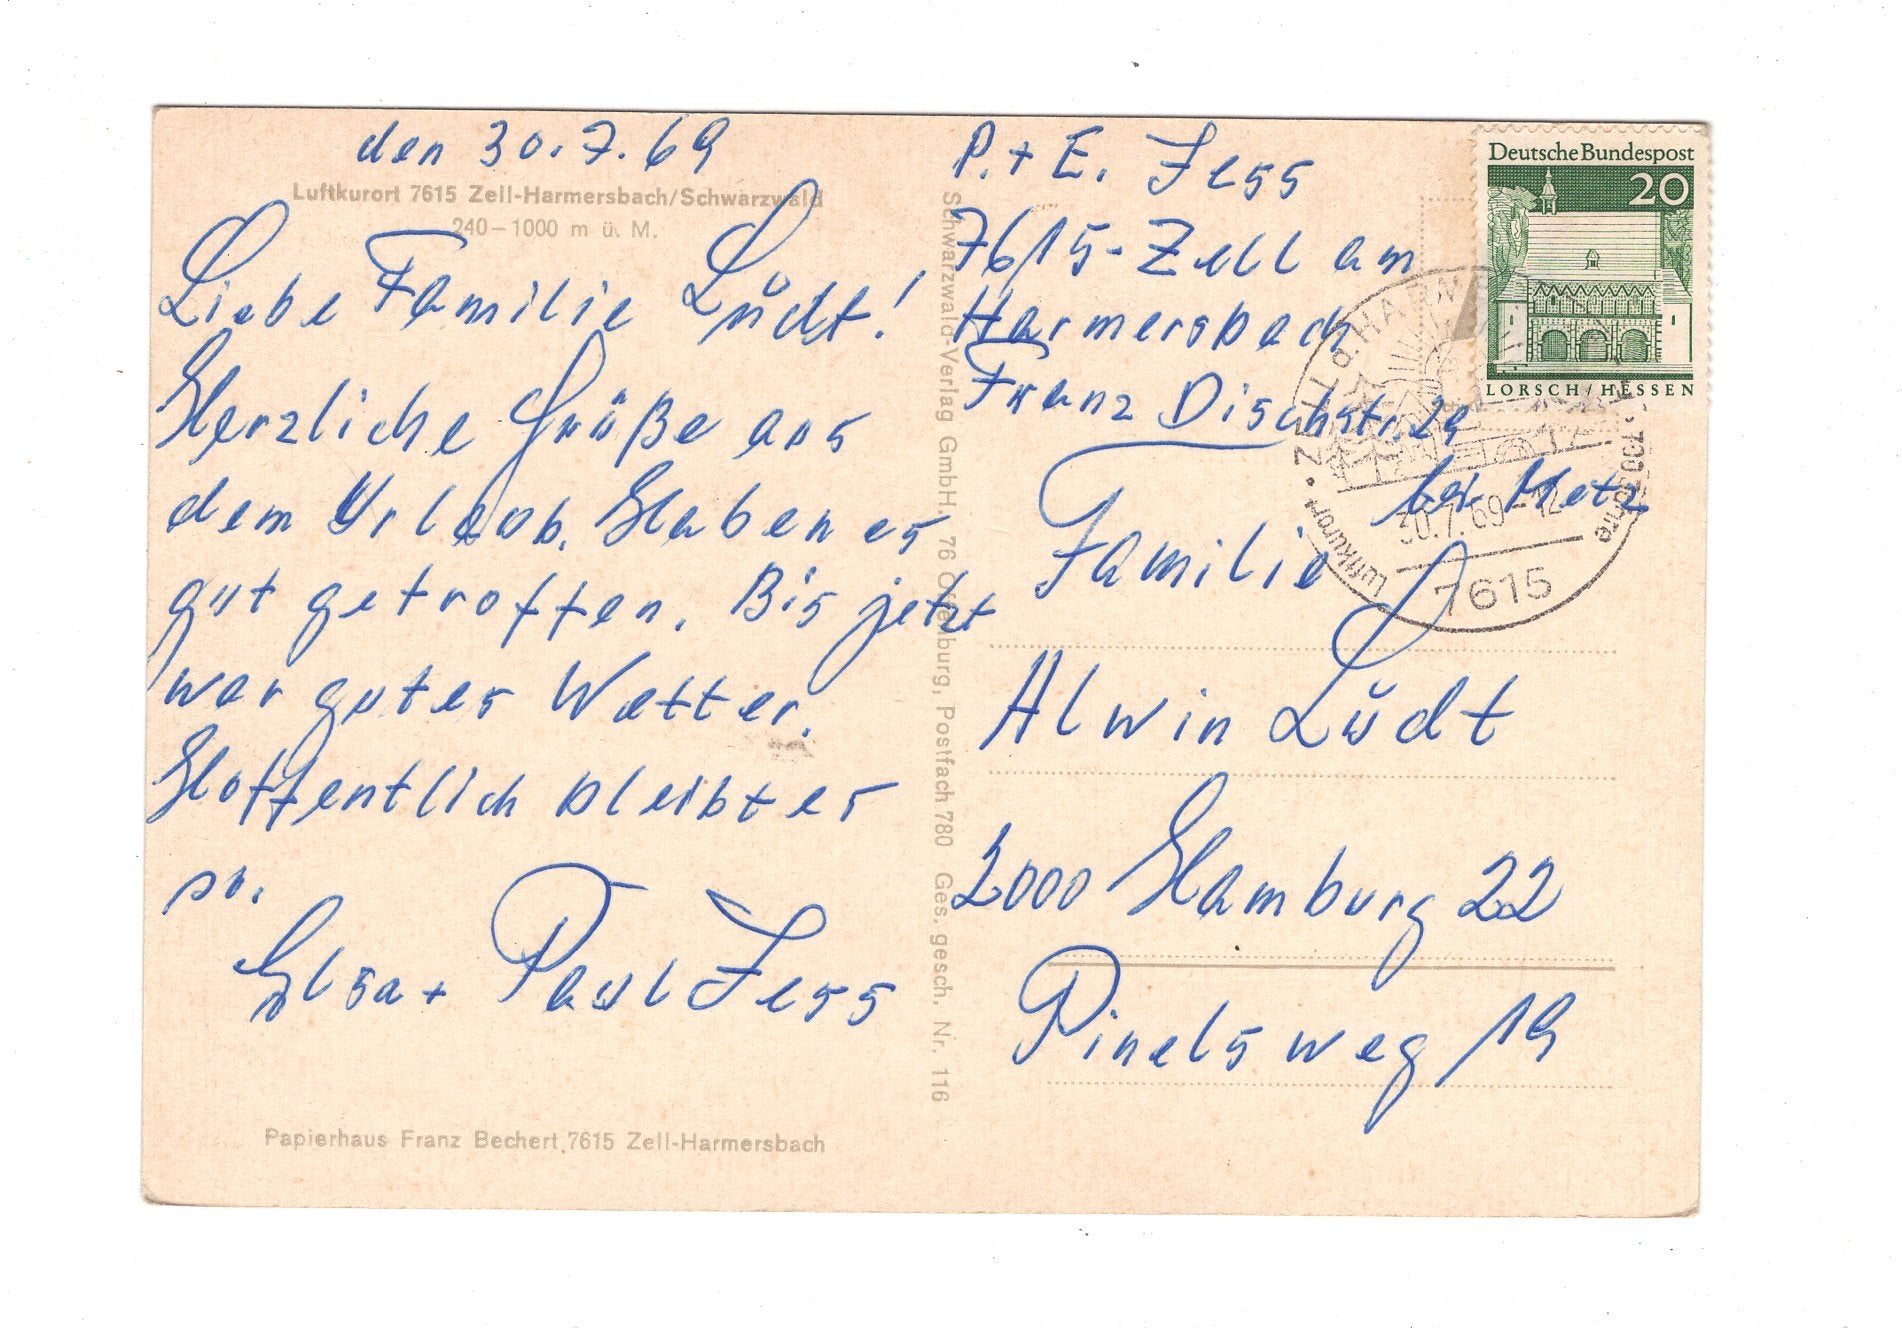 den 30.7.69
Luftkurort 7615 Zell-Harmersbach/Schwarzwald
240–1000 m ü. M.
Liebe Familie Lŭdt!
Herzliche Grüße aus
dem Urlaub. Haben es
gut getroffen. Bis jetzt
war gutes Wetter.
Hoffentlich bleibt es
so.
Elsa + Paul Fess
Papierhaus Franz Bechert, 7615 Zell-Harmersbach
Schwarzwald-Verlag GmbH, 76 Offenburg, Postfach 780 Ges. gesch. Nr. 116
P. + E. Fess
7615-Zell am
Harmersbach
Franz Dischstr. 29
bei Metz
Familie
Alwin Lŭdt
2000 Hamburg 22
Pinelsweg 19
Deutsche Bundespost
20
LORSCH/HESSEN
Luftkurort • ZELL a. HARM
700 Jahre
30.7.69-12
7615